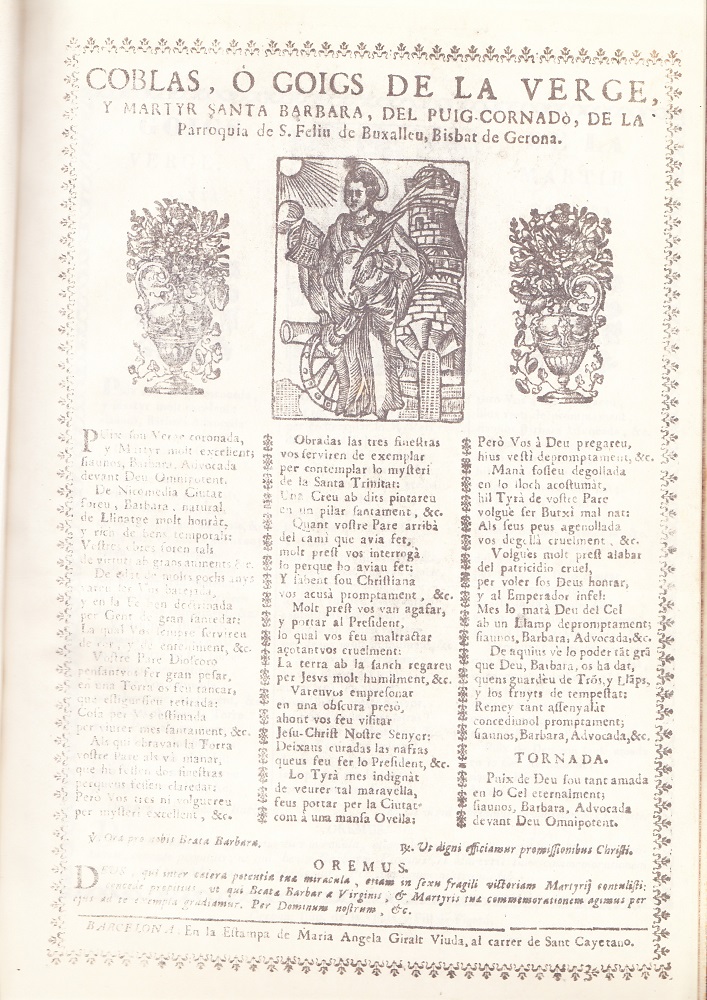 COBLAS, Ò GOIGS DE LA VERGE,
Y MARTYR SANTA BARBARA, DEL PUIG-CORNADò, DE LA
Parroquia de S. Feliu de Buxalleu, Bisbat de Gerona.
PUix sou Verge coronada,
y Martyr molt excellent;
siaunos, Barbara, Advocada
devant Deu Omnipotent.
De Nicomedia Ciutat
foreu, Barbara, natural,
de Llinatge molt honràt,
y rica de bens temporals:
Vostres obres foren tals
de virtut, als grans animents &c.
De edat de molts pochs anys
y en la Fe ben
per Gent gran sanctedat:
La qual Vos sempre serviren
de cor, y de enteniment, &c.
Vostre Pare Dioscoro
pensantvos fer gran pesar,
en una Torra os feu tancar,
que estiguesseu retirada:
Cosa per Vos estimada
per viurer mes santament, &c.
Als qui obravan la Torra
vostre Pare als va manar,
que hi fessen dos finestras
perquent fessen claredat:
Però Vos tres ni volgureu
per mysteri excellent, &c.
Obradas las tres finestras
vos serviren de exemplar
per contemplar lo mysteri
de la Santa Trinitat:
Una Creu ab dits pintareu
en un pilar santament, &c.
Quant vostre Pare arribà
del camí que avia fet,
molt prest vos interrogà
lo perque ho aviau fet;
Y sabent sou Christiana
vos acusà promptament, &c.
Molt prest vos van agafar,
y portar al President,
lo qual vos feu maltractar
açotantvos cruelment:
La terra ab la sanch regareu
per Jesvs molt humilment, &c.
Varenvos empresonar
en una obscura presò,
ahont vos feu visitar
Jesu-Christ Nostre Senyor:
Deixans curadas las nafras
queus feu fer lo President, &c.
Lo Tyrà mes indignàt
de veurer tal maravella,
feus portar per la Ciutat
com à una mansa Ovella;
Però Vos à Deu pregareu,
hius vestì depromptament, &c.
Manà fosseu degollada
en lo lloch acostumàt,
hil Tyrà de vostre Pare
volguè ser Butxì mal nat:
Als seus peus agenollada
vos degollà cruelment, &c.
Volguès molt prest alabar
del patricidio cruel,
per voler sos Deus honrar,
y al Emperador infel:
Mes lo matà Deu del Cel
ab un Llamp depromptament;
siaunos, Barbara, Advocada,&c.
De aquius ve lo poder tāt grā
que Deu, Barbara, os ha dat,
quens guardeu de Trōs, y Llāps,
y los fruyts de tempestat:
Remey tant assenyalàt
concediunol promptament;
siaunos, Barbara, Advocada,&c.
TORNADA.
Puix de Deu sou tant amada
en lo Cel eternalment;
siaunos, Barbara, Advocada
devant Deu Omnipotent.
℣. Ora pro nobis Beata Barbara.
℟. Ut digni efficiamur promissionibus Christi.
OREMUS.
DEUS, qui inter cætera potentiæ tuæ miracula, etiam in sexu fragili victoriam Martyrij contulisti:
concede propitius, ut qui Beatæ Barbaræ Virginis, & Martyris tuæ commemorationem agimus per
ejus ad te exempla gradiamur. Per Dominum nostrum, &c.
BARCELONA: En la Estampa de Maria Angela Giralt Viuda, al carrer de Sant Cayetano.